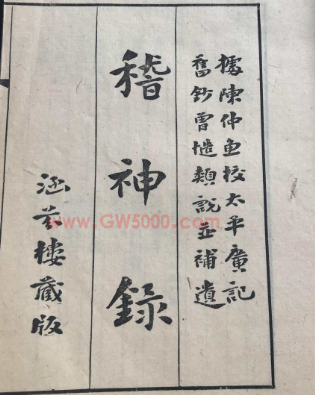 據陳仲魚校太平廣記
舊鈔曾慥類說並補遺
稽神錄
涵芬樓藏版
www.GW5000.com